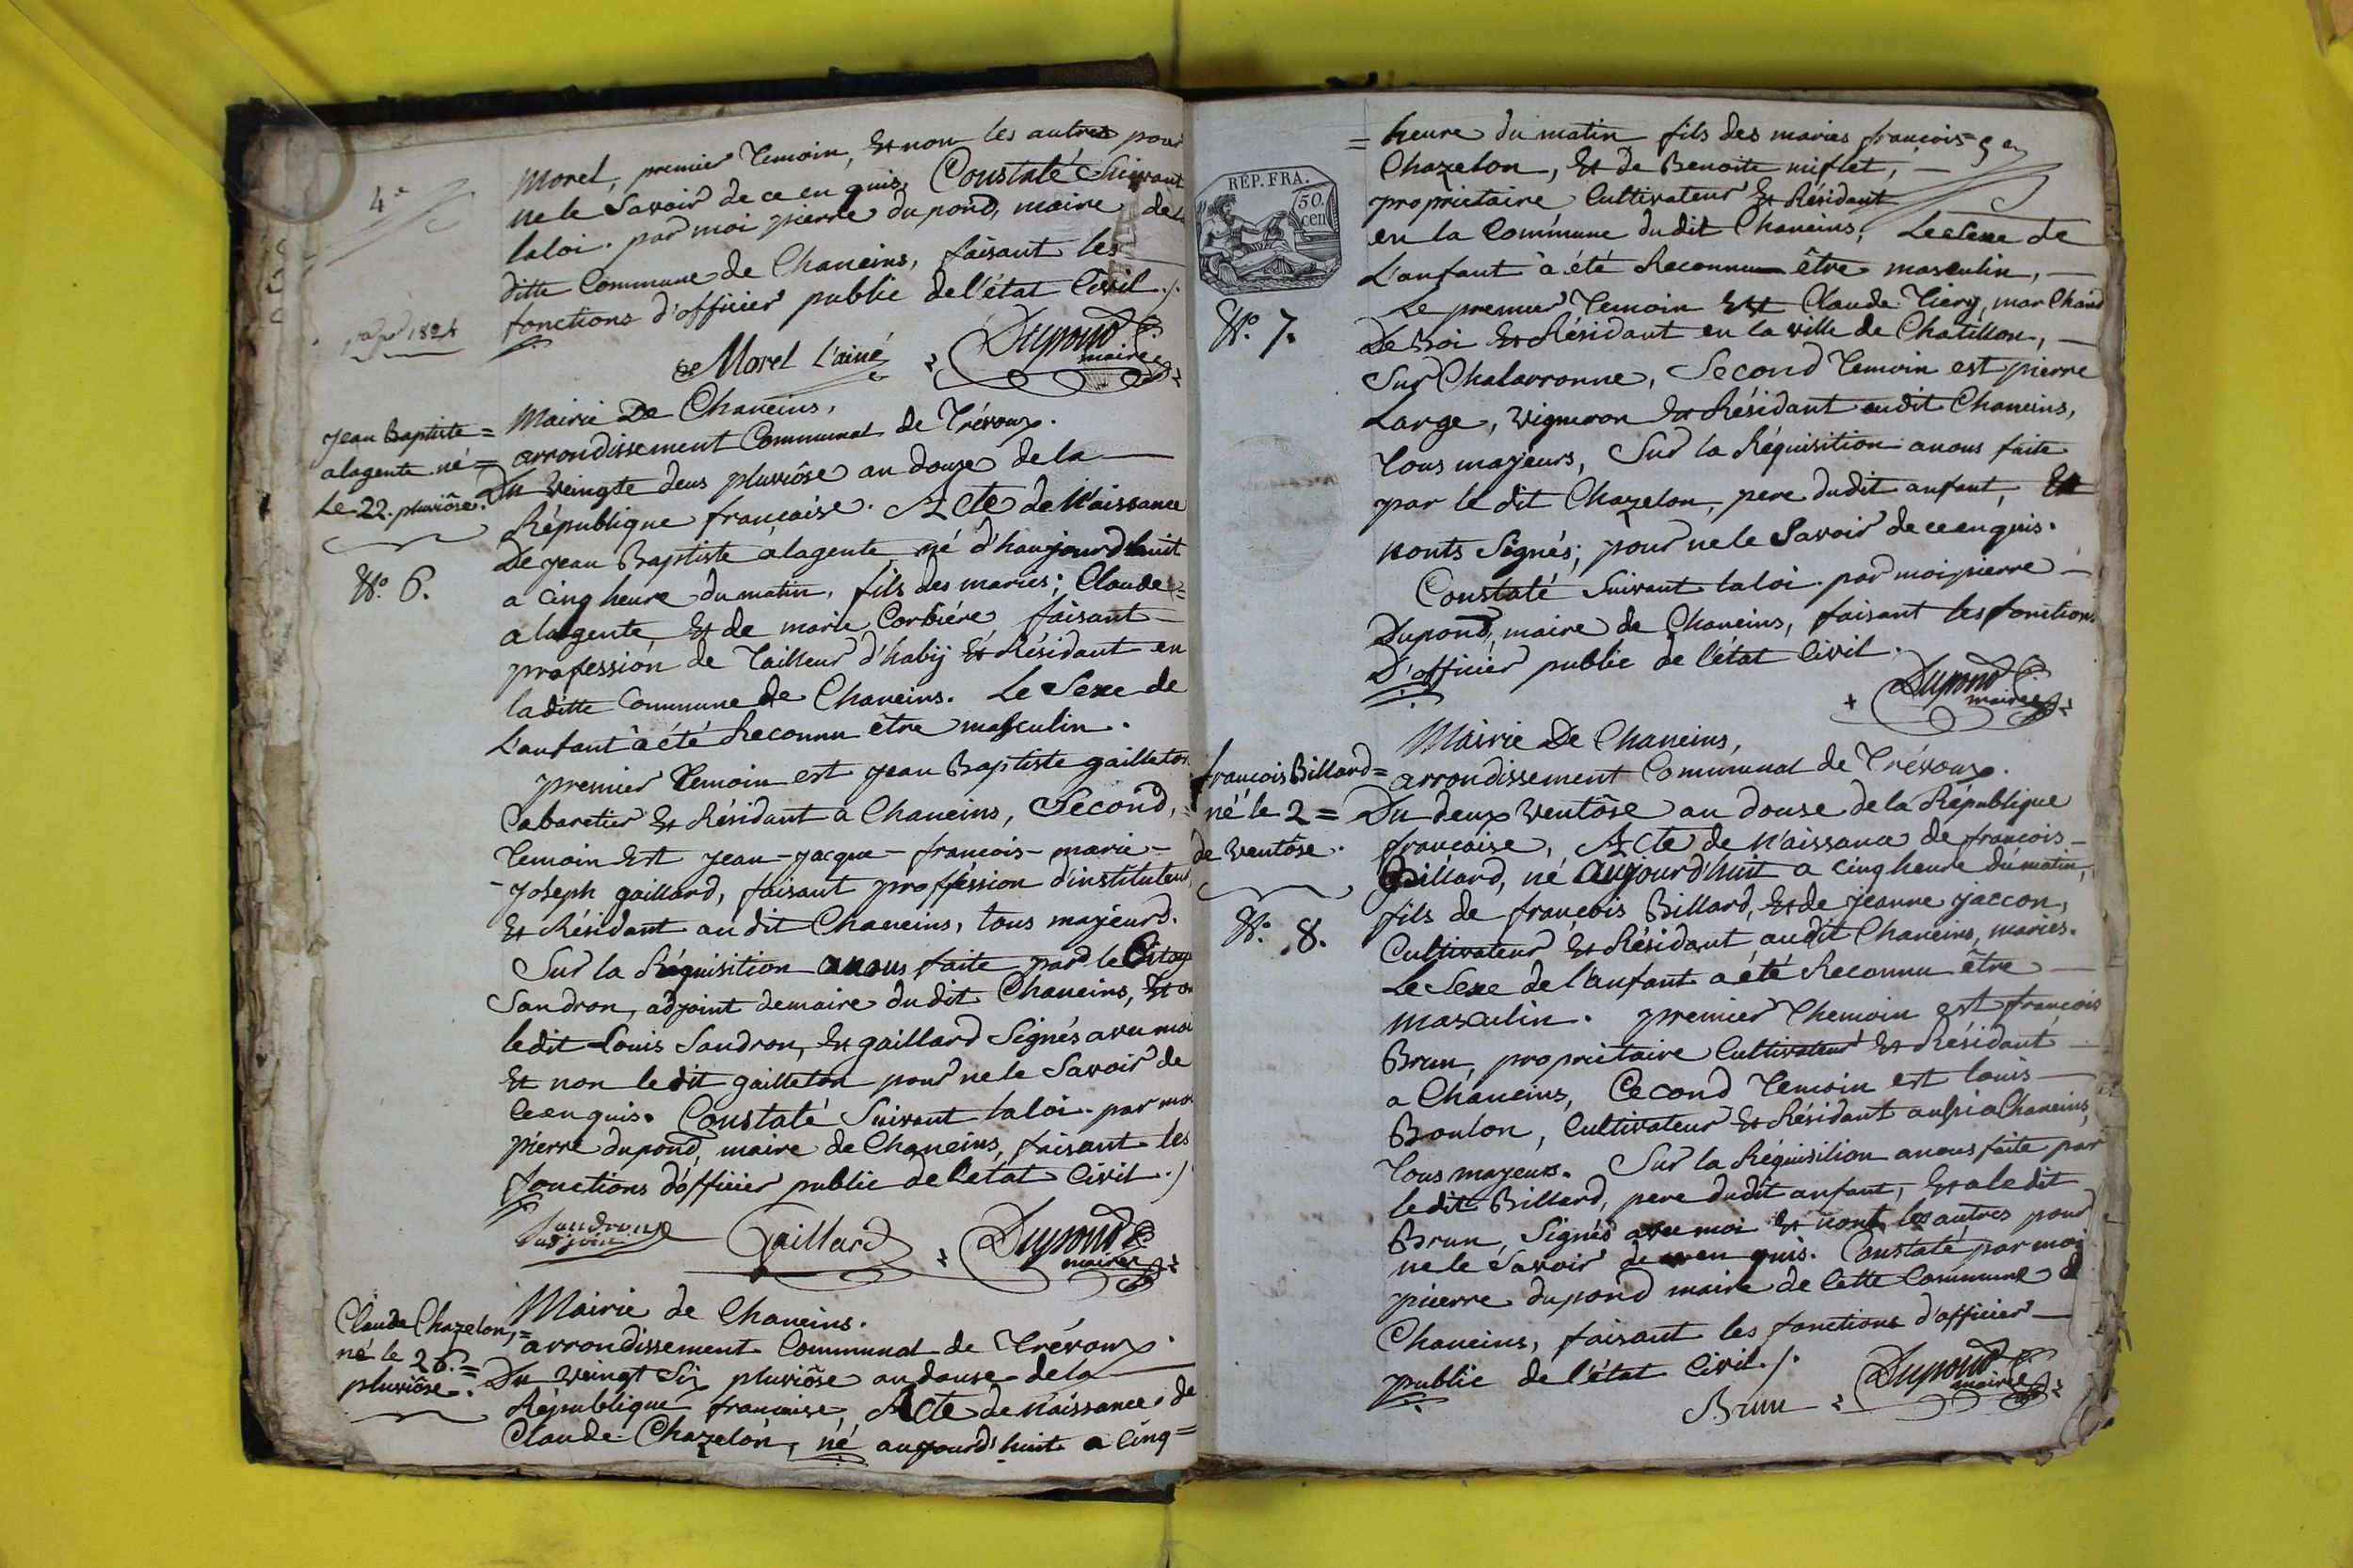 4e
Morel, premier temoin, Et non les autres pour
ne le Savoir de ce en quis, Constaté Suivant
la loi. par moi pierre dupond, maire de la
ditte Commune de Chaneins, faisant les
fonctions d'officier public de l'état Civil ./.
1824
Morel L'ainé
Dupond
maire
Mairie De Chaneins,
Jean Baptiste =
alagente né =
Le 22. pluviôse.
N°. 6.
arrondissement Communal de Trévoux.
Du Veingte deus pluviôse an douze de la
République française. Acte de Naissance
De jean Baptiste alagente né d'haujourd'huit
a cinq heure du matin, fils des mariés; Claude =
alagente Et de marie Corbiére faisant
profession de Tailleur d'habij Et Résidant en
laditte Commune de Chaneins. Le Sexe de
L'anfant à été Reconnu être masculin.
premier Temoin est jean Baptiste gailleton
Cabaretier Et Résidant a Chaneins, Second,
Temoin Est jean - jacque - francois - marie -
- Joseph gaillard, faisant proffession d'instituteur,
Et Résidant au dit Chaneins, tous majeurs.
Sur la Réquisition a nous faite par le Citoye
Sandron, adjoint demaire du dit Chaneins, Et on
ledit Louis Sandron, Et gaillard Signés avec moi
Et non ledit gailleton pour ne le Savoir de
ce en quis. Constaté Suivant la loi. par moi
pierre dupond, maire de Chaneins, faisant les
fonctions d'officier public de l'état Civil ./
Sandron
adjoint
Gaillard
Dupond
maire
Mairie de Chaneins.
Claude Chazelon, =
né le 26. =
pluviôse.
arrondissement Communal de Trévoux.
Du Veingt Six pluviôse an douse de la
République francaise, Acte de Naissance, de
Claude Chazelon, né aujourd'huit a Cinq =
= heure du matin fils des mariés francois =
Chazelon, Et de Benoite miflet,
propriétaire Cultivateur Et Résidant
en la Commune du dit Chaneins, Le Sexe de
L'anfant à été Reconnu être masculin,
RÉP. FRA.
50.
cen
N°. 7.
Le premier Temoin Est Claude Tiery, marChand
De Boi Et Résidant en la ville de Chatillon,
Sur Chalaronne, Second Temoin est pierre
Large, vigneron Et Résidant audit Chaneins,
Tous majeurs, Sur la Réquisition a nous faite
par le dit Chazelon, pere dudit anfant, Et
nonts Signés; pour ne le Savoir de ce en quis.
Constaté Suivant la loi. par moi pierre
Dupond, maire de Chaneins, faisant les fonctions
D'officier public de l'état Civil.
Dupond
maire
Mairie De Chaneins,
francois Billard =
né le 2 =
de Ventôse.
N°. 8.
arrondissement Communal de Trévoux.
Du deux Ventôse an douse de la République
francaise, Acte de Naissance de francois
Billard, né aujourd'huit a cinq heure du matin,
fils de françois Billard, Et de jeanne jaccon,
Cultivateur Et Résidant audit Chaneins, mariés.
Le Sexe de l'anfant a été Reconnu être
masculin. premier Themoin est francois
Brun, propriétaire Cultivateur Et Résidant
a Chaneins, Cecond Temoin est louis
Boulon, Cultivateur Et Résidant aussi a Chaneins,
Tous majeurs. Sur la Réquisition a nous faite par
ledit Billard, pere dudit anfant, Et a ledit
Brun, Signés avec moi Et nont les autres pour
ne le Savoir de ce en quis. Constaté par moi
pierre dupond maire de Cette Commune de
Chaneins, faisant les fonctions d'officier
public de l'état Civil ./.
Brun
Dupond
maire